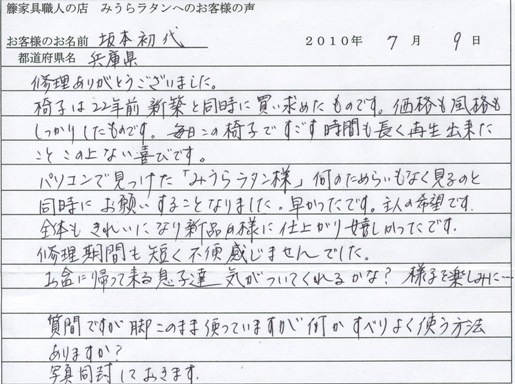 籐家具職人の店 みうらラタンへのお客様の声
お客様のお名前 坂本初代 2010年 7月 9日
都道府県名 兵庫県
修理ありがとうございました。
椅子は22年前新築と同時に買い求めたものです。価格も風格も
しっかりしたものです。毎日この椅子ですごす時間も長く再生出来た
ことこの上ない喜びです。
パソコンで見つけた「みうらラタン様」何のためらいもなく見るのと
同時にお願いすることなりました。早かったです。主人の希望です。
全体もきれいになり新品同様に仕上がり嬉しかったです。
修理期間も短く不便感じませんでした。
お盆に帰って来る息子達 気がついてくれるかな? 様子を楽しみに…
質問ですが脚このまま使っていますが何かすべりよく使う方法
ありますか?
写真同封しておきます。